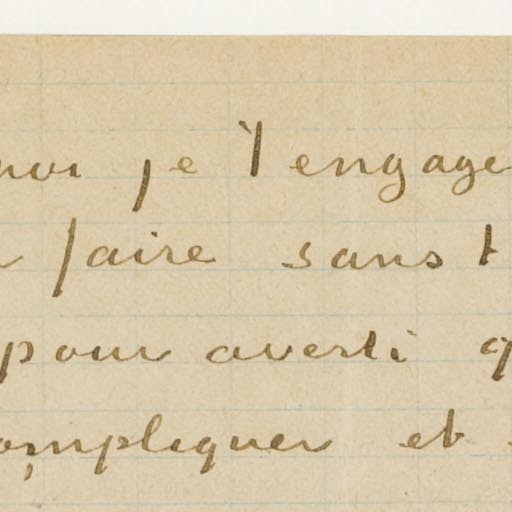 moi je t'engage
faire sans t
pour averti q
ompliquer et